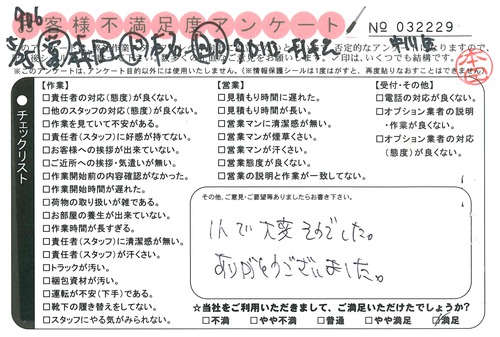 お客様不満足度アンケート
№ 032229
※このアンケートは、アンケート目的以外には使用いたしません。(※情報保護シールは1度はがすと、再度貼りなおすことはできません。)
チェックリスト
【作業】
□責任者の対応(態度)が良くない。
□他のスタッフの対応(態度)が良くない。
□作業を見ていて不安がある。
□責任者(スタッフ)に好感が持てない。
□お客様への挨拶が出来ていない。
□ご近所への挨拶・気遣いが無い。
□作業開始前の内容確認がなかった。
□作業開始時間が遅れた。
□荷物の取り扱いが雑である。
□お部屋の養生が出来ていない。
□作業時間が長すぎる。
□責任者(スタッフ)に清潔感が無い。
□責任者(スタッフ)が汗くさい。
□トラックが汚い。
□梱包資材が汚い。
□運転が不安(下手)である。
□靴下の履き替えをしてない。
□スタッフにやる気がみられない。
【営業】
□見積もり時間に遅れた。
□見積もり時間が長い。
□営業マンに清潔感が無い。
□営業マンが煙草くさい。
□営業マンが汗くさい。
□営業態度が良くない。
□営業の説明と作業が一致してない。
【受付・その他】
□電話の対応が良くない。
□オプション業者の説明
・作業が良くない。
□オプション業者の対応
(態度)が良くない。
その他、ご意見・ご要望等ありましたらお書き下さい。
1人で大変そうでした。
ありがとうございました。
☆当社をご利用いただきまして、ご満足いただけたでしょうか?
□不満 □やや不満 □普通 □やや満足 □満足